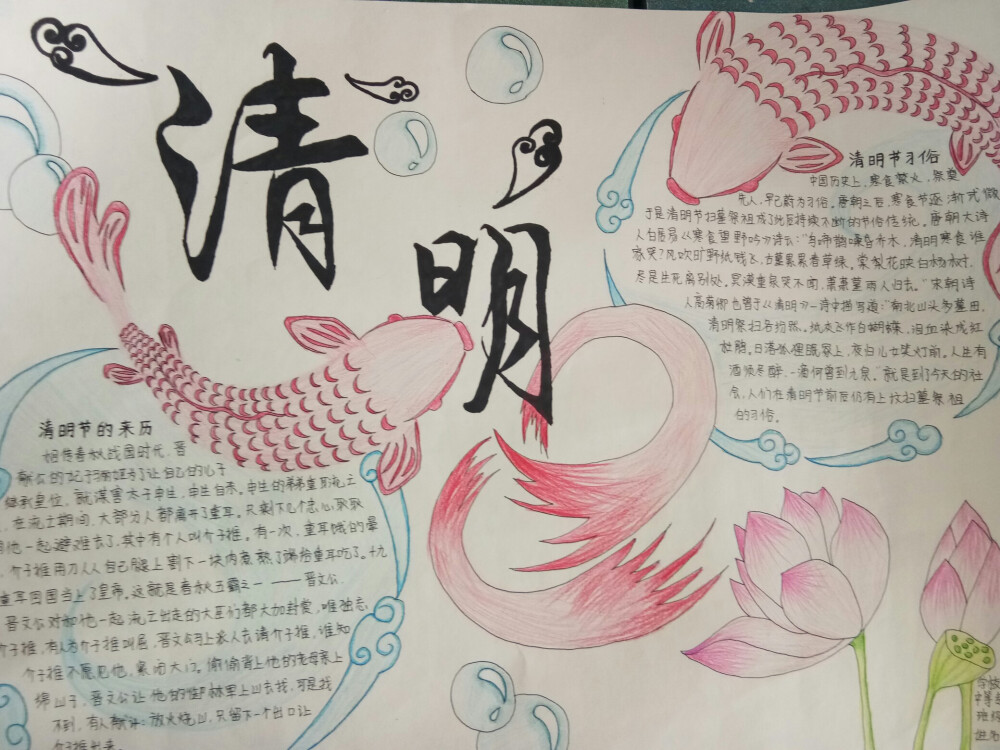 清明
清明节的来历
相传春秋战国时代，晋
献公的妃子骊姬为了让自己的儿子
继承皇位，就谋害太子申生，申生自杀。申生的弟弟重耳流亡
在流亡期间，大部分人都离开了重耳。只剩下几个忠心耿耿
他一起避难去了，其中有个人叫介子推。有一次，重耳饿的晕
介子推用刀从自己腿上割下一块肉煮熟了端给重耳吃了。十九
重耳回国当上了皇帝，这就是春秋五霸之一——晋文公。
晋文公对和他一起流亡出走的大臣们都大加封赏，唯独忘
介子推，有人为介子推叫屈，晋文公马上派人去请介子推，谁知
介子推不愿见他，紧闭大门。偷偷背上他的老母亲上
绵山了，晋文公让他的御林军上山去找，可是找
不到，有人献计：放火烧山，只留下一个出口让
介子推出来。
清明节习俗
中国历史上，寒食禁火，祭奠
先人，早已蔚为习俗。唐朝之后，寒食节逐渐式微
于是清明节扫墓祭祖成了此后持续不断的节俗传统。唐朝大诗
人白居易《寒食望野吟》诗云：“乌啼鹊噪昏乔木，清明寒食谁
家哭？风吹旷野纸钱飞，古墓累累春草绿。棠梨花映白杨树，
尽是生死离别处。冥漠重泉哭不闻，萧萧暮雨人归去。”宋朝诗
人高菊卿也曾于《清明》一诗中描写道：“南北山头多墓田，
清明祭扫各纷然。纸灰飞作白蝴蝶，泪血染成红
杜鹃。日落狐狸眠冢上，夜归儿女笑灯前。人生有
酒须尽醉，一滴何曾到九泉。”就是到了今天的社
会，人们在清明节前后仍有上坟扫墓祭祖
的习俗。